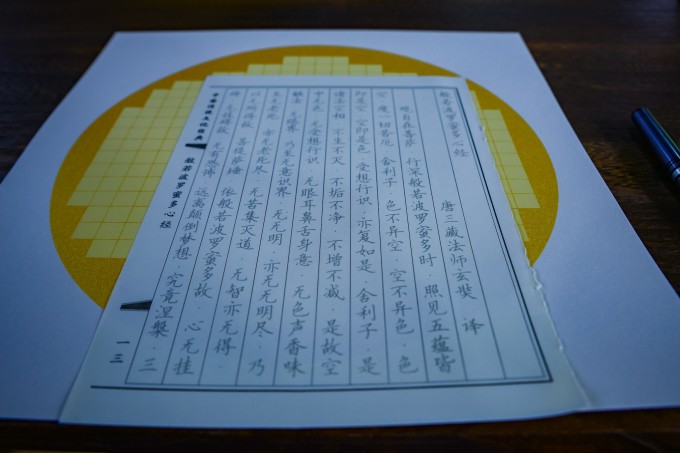 般若波罗蜜多心经
唐三藏法师玄奘 译
观自在菩萨 行深般若波罗蜜多时 照见五蕴皆
空·度一切苦厄·舍利子·色不异空·空不异色·色
即是空·空即是色·受想行识·亦复如是·舍利子·是
诸法空相·不生不灭·不垢不净·不增不减·是故空
中无色·无受想行识·无眼耳鼻舌身意·无色声香味
触法·无眼界·乃至无意识界·无无明·亦无无明尽·乃
至无老死·亦无老死尽·无苦集灭道·无智亦无得·
以无所得故·菩提萨埵·依般若波罗蜜多故·心无挂
碍·无挂碍故·无有恐怖·远离颠倒梦想·究竟涅槃·三
中国传统文化经典
般若波罗蜜多心经
一三